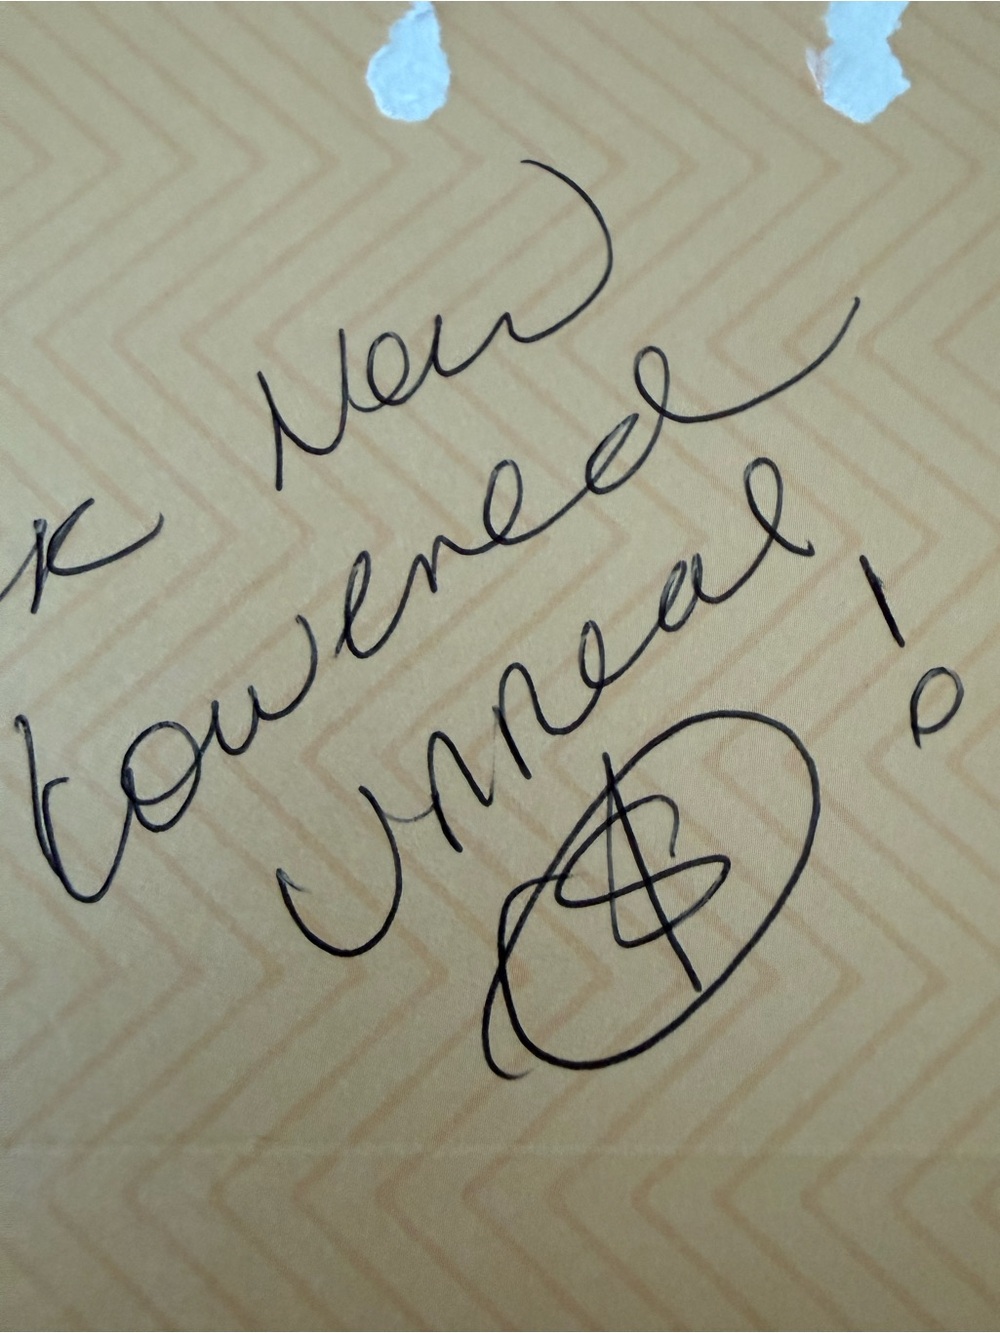 * New
towered
unreal!
$